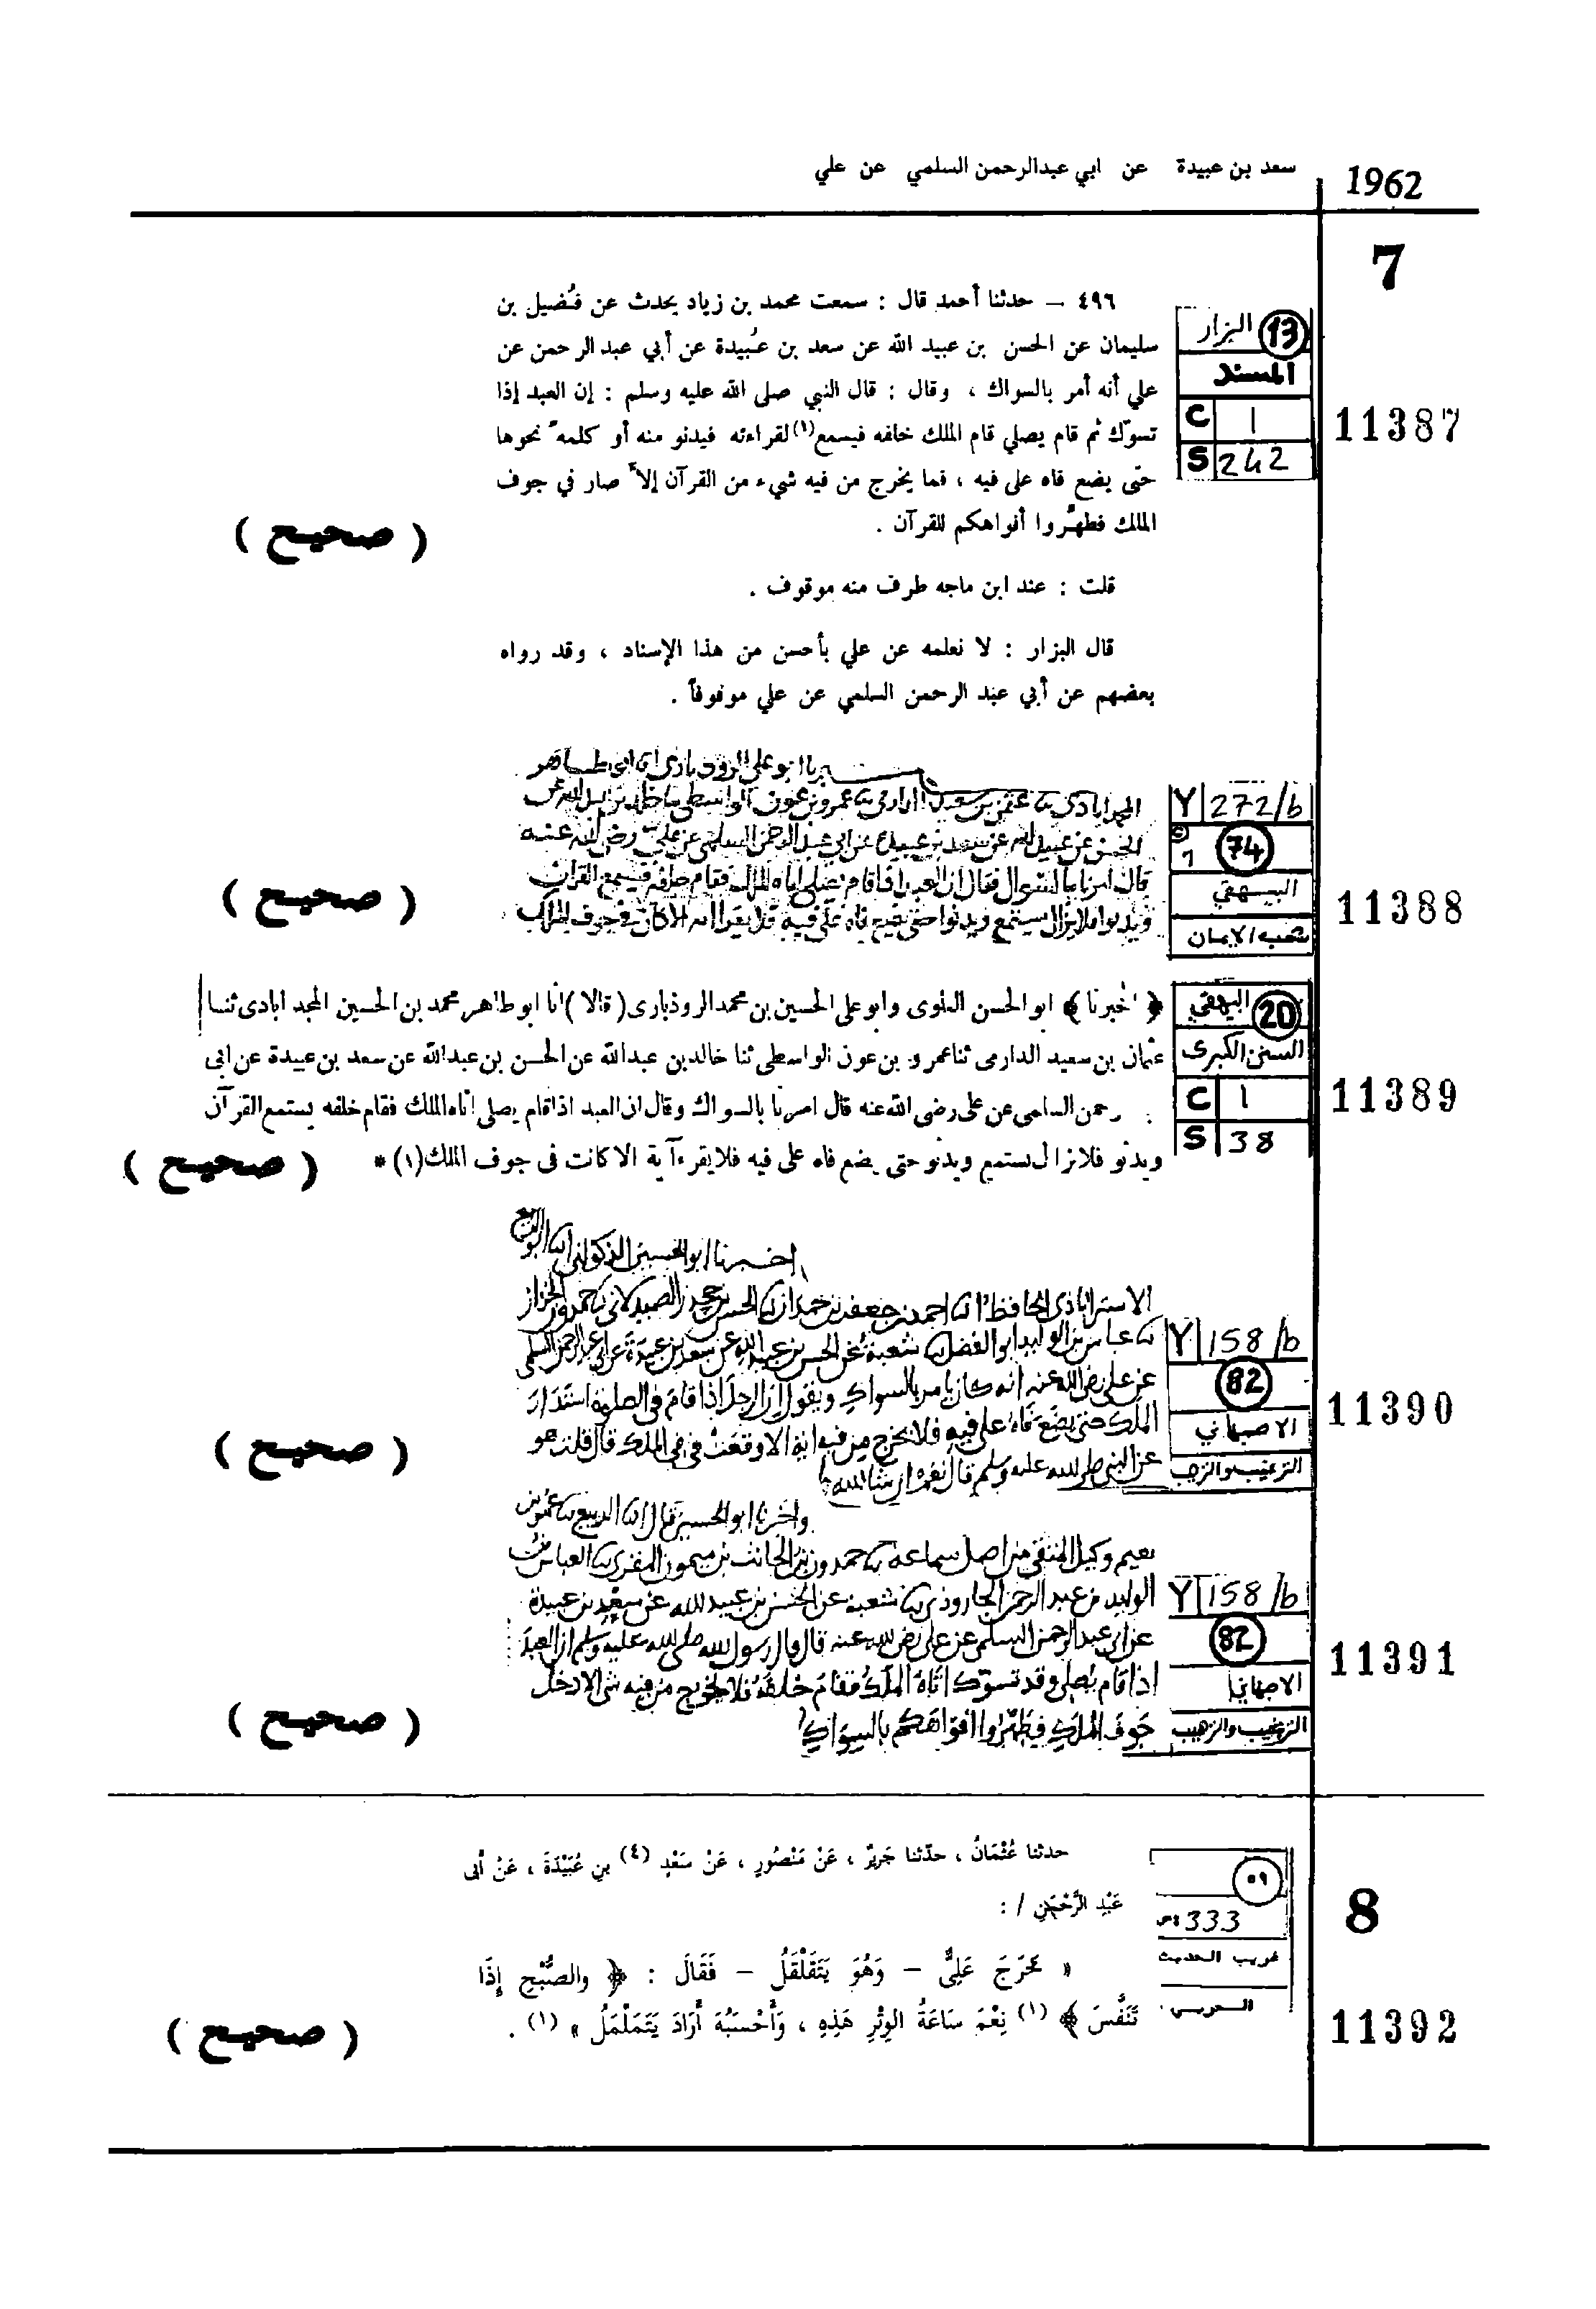 سعد بن عبيدة عن ابي عبدالرحمن السلمي عن علي
1962
7
٤٩٦ – حدثنا أحمد قال : سمعت محمد بن زياد يحدث عن فُضيل بن
سليمان عن الحسن بن عبيد الله عن سعد بن عُبيدة عن أبي عبد الرحمن عن
علي أنه أمر بالسواك ، وقال : قال النبي صلى الله عليه وسلم : إن العبد إذا
تسوّك ثم قام يصلي قام الملك خلفه فيسمع (١) لقراءته فيدنو منه أو كلمه نحوها
حتى يضع فاه على فيه ، فما يخرج من فيه شيء من القرآن إلاّ صار في جوف
الملك فطهّروا أفواهكم للقرآن .
( صحيح )
13 البزار
المسند
C 1
S 242
11387
قلت : عند ابن ماجه طرف منه موقوف .
قال البزار : لا نعلمه عن علي بأحسن من هذا الإسناد ، وقد رواه
بعضهم عن أبي عبد الرحمن السلمي عن علي موقوفاً .
ابو علي الروذباري ابو طاهر
المجدابادي عثمن بن سعيد الدارمي عمرو بن عون الواسطي خالد بن عبد الله عن
الحسن بن عبيد الله عن سعد بن عبيدة عن ابي عبد الرحمن السلمي عن علي رضي الله عنه
قال امرنا بالسواك فقال ان العبد اذا قام يصلي اتاه الملك فقام خلفه فيسمع القران
ويدنوا فلا يزال يستمع ويدنوا حتى يضع فاه على فيه فلا يقرا اية الا كانت في جوف الملك
( صحيح )
Y 272/b
© 1 74
البيهقي
شعب الإيمان
11388
﴿ اخبرنا ﴾ ابو الحسن العلوى وابو على الحسين بن محمد الروذبارى (قالا) انا ابو طاهر محمد بن الحسين المجد ابادى ثنا
عثمان بن سعيد الدارمى ثنا عمرو بن عون الواسطى ثنا خالد بن عبدالله عن الحسن بن عبدالله عن سعد بن عبيدة عن ابى
رحمن السلمى عن على رضى الله عنه قال امرنا بالسواك وقال ان العبد اذا قام يصلى اتاه الملك فقام خلفه يستمع القرآن
ويدنو فلا يزال يستمع ويدنو حتى يضع فاه على فيه فلا يقرء آية الا كانت فى جوف الملك (١) *
( صحيح )
20 البيهقي
السنن الكبرى
C 1
S 38
11389
اخبرنا ابو الحسين الذكواني ابو
الاستراباذي الحافظ احمد بن جعفر بن حمدان الحسن بن الصيدلاني حمدون الخزاز
عباس بن الوليد ابو الفضل شعبة عن الحسن بن عبيد الله عن سعد بن عبيدة عن ابي عبد الرحمن السلمي
عن علي رضي الله عنه انه كان يامر بالسواك ويقول ان الرجل اذا قام في الصلوة استدار
الملك حتى يضع فاه على فيه فلا يخرج من فيه اية الا وقعت في في الملك قال قلت هو
عن النبي صلى الله عليه وسلم قال نعم ان شا الله
( صحيح )
Y 158/b
82
الاصبهاني
الترغيب والترهيب
11390
واخبرنا ابو الحسين قال الربيع
نعيم وكيل المتقي من اصل سماعه حمدون بن الحارث بن ميمون المقري العباس بن
الوليد بن عبد الرحمن الجارودي شعبة عن الحسن بن عبيد الله عن سعد بن عبيدة
عن ابي عبد الرحمن السلمي عن علي رضي الله عنه قال قال رسول الله صلى الله عليه وسلم ان العبد
اذا قام يصلي وقد تسوك اتاه الملك فقام خلفه فلا يخرج من فيه شي الا دخل
جوف الملك فطهروا افواهكم بالسواك
( صحيح )
Y 158/b
82
الاصبهاني
الترغيب والترهيب
11391
8
حدثنا عُثْمَانُ ، حدّثنا جَرِيرٌ ، عَنْ مَنْصُورٍ ، عَنْ سَعْدِ (٤) بنِ عُبَيْدَةَ ، عَنْ أَبى
عَبْدِ الرَّحْمَنِ / :
« خَرَجَ عَلِىٌّ – وَهُوَ يَتَقَلْقَلُ – فَقَالَ : ﴿ والصُّبْحِ إِذَا
تَنَفَّسَ ﴾ (١) نِعْمَ سَاعَةُ الوِتْرِ هَذِهِ ، وَأَحْسَبُهُ أَرَادَ يَتَمَلْمَلُ » (١) .
( صحيح )
٥٩
ص 333
غريب الحديث
الحربي
11392